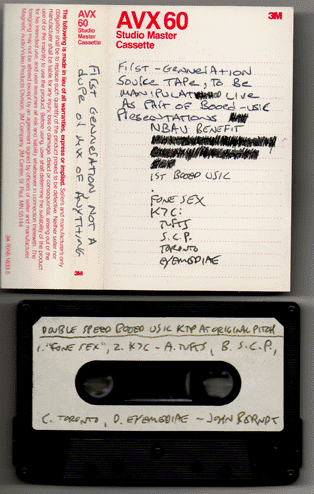 AVX
60
Studio
Master
Cassette
The following is made in lieu of all warranties, express or implied: Seller's and manufacturer's only
obligation shall be to replace such quantity of the product proved to be defective. Neither seller nor
manufacturer shall be liable for any injury, loss or damage, direct or consequential, arising out of the
use of or the inability to use the product. Before using, user shall determine the suitability of the product
for his intended use, and user assumes all risk and liability whatsoever in connection therewith. The
foregoing may not be altered except by an agreement signed by officers of seller and manufacturer.
Magnetic Audio/Video Products Division, 3M Company, 3M Center, St. Paul, MN 55144
FIRST GENERATION, NOT A
DUPE OR MIX OF ANYTHING
3M
AVX 60
3M
Studio Master
Cassette
FIRST-GENERATION
SOURCE TAPE, TO BE
MANIPULATED LIVE
AS PART OF BOOED-USIC
PRESENTATIONS
NBAU BENEFIT
1ST BOOED USIC
FONE SEX
K7C:
TUFTS
S.C.P.
TORONTO
EYEMODIAE
DOUBLE SPEED BOOED USIC KTP AT ORIGINAL PITCH
1. "FONE SEX", 2. K7C - A. TUFTS, B. S.C.P.,
C. TORONTO, D. EYEMODIAE - JOHN BERNDT